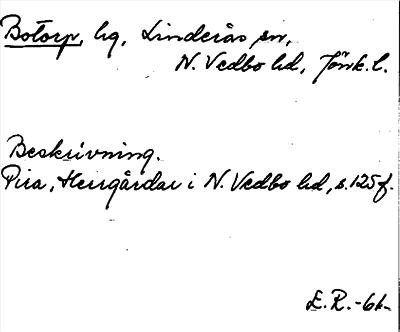 Botorp, hg, Linderås sn,
N. Vedbo hd, Jönk. l.
Beskrivning.
Pira, Herrgårdar i N. Vedbo hd, s. 125 f.
E. R. -61-